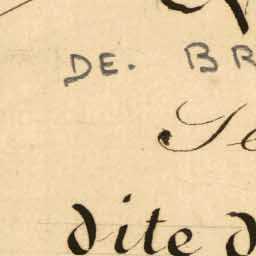 DE. BR
Se
dite d